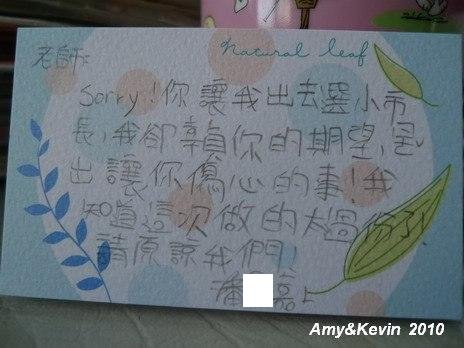 natural leaf
老師:
Sorry!你讓我出去選小市
長,我卻辜負你的期望,
出讓你傷心的事!我
知道這次做的太過份了!
請原諒我們!
潘 嘉上
Amy&Kevin 2010